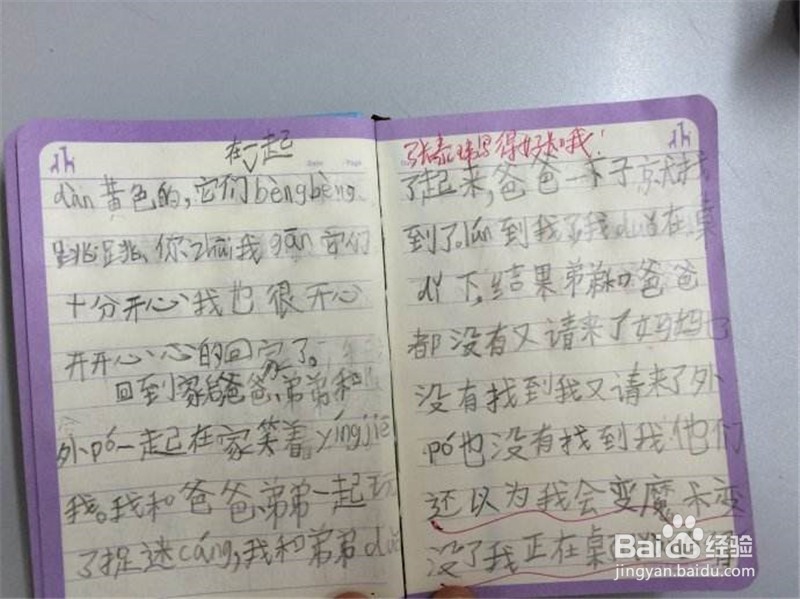 在一起
dàn黄色的,它们bèngbèng
跳跳、你zhuī我gǎn它们
十分开心我也很开心
开开心心的回家了。
回到家后爸爸、弟弟和
外pó一起在家笑着yíngjiē
我。我和爸爸、弟弟一起玩
了捉迷cáng,我和弟弟duǒ
得好哦!
了起来,爸爸一下子就找
到了。lún到我了我duǒ在桌
dǐ下。结果弟弟和爸爸
都没有又请来了妈妈也
没有找到我又请来了外
pó也没有找到我他们
还以为我会变魔术变
没了我正在桌
Baidu经验
jingyan.baidu.com